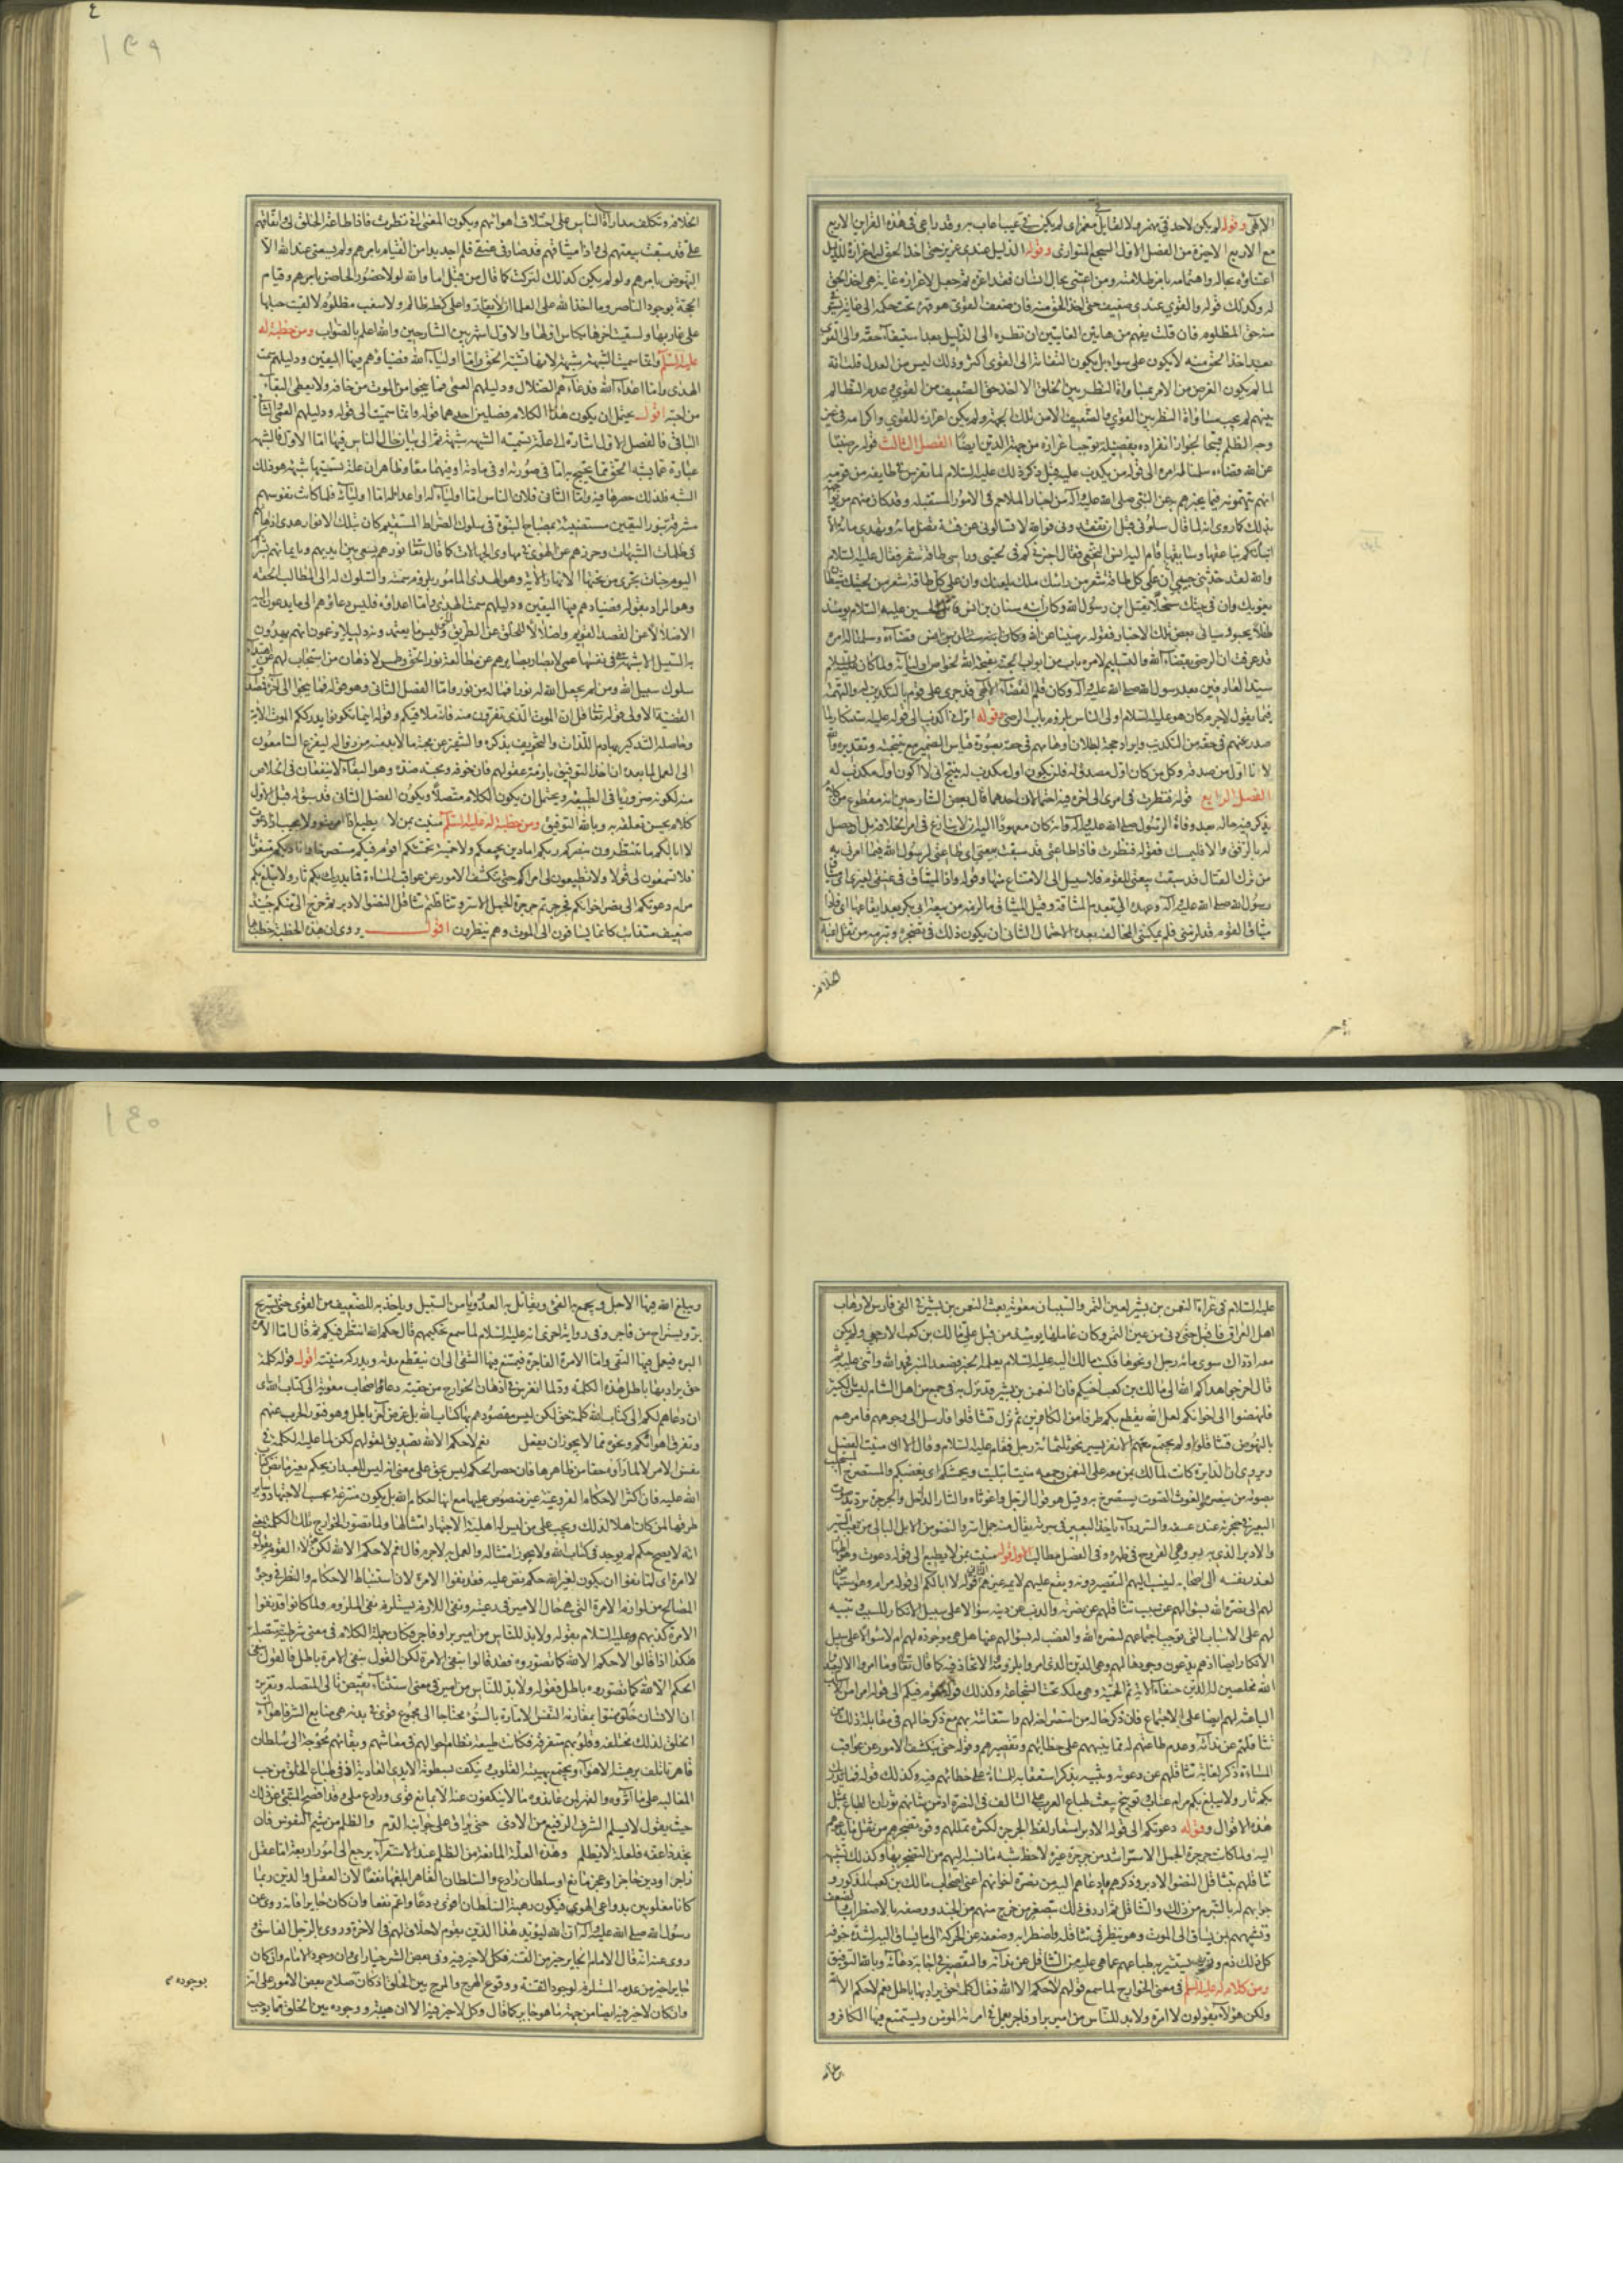 الالهى وقوله لم يكن لاحد فى مهمز ولا لقايل مغمز اى لم يكن فى عيبا اعاب به وقد راعى فى هذه القراين الاربع
مع الاربع الاخيرة من الفصل الاول السجع المتوازى وقوله الذليل عندى عزيز حتى اخذ الحق له اعزازه للذليل
اعتناؤه بحاله واهتمامه بامر ظلامته ومن اعتنى بحال انسان فقد اعزه ثم جعل لاعزازه غاية هى اخذ الحق
له وكذلك قوله والقوى عندى ضعيف حتى اخذ الحق منه فان ضعف القوى هو قهره تحت حكمه الى غاية يستوفى
منه حق المظلوم فان قلت يفهم من هاتين الغايتين ان نظره الى الذليل بعد استيفآء حقه والى القوى
بعد اخذ الحق منه لا يكون على سوا بل يكون التفاته الى القوى اكثر وذلك ليس من العدل قلت انه
لما لم يكون الغرض من الامر بمساواة النظر بين الخلق الا اخذ حق الضعيف من القوى وعدم التظالم
بينهم لم يجب مساواة النظر بين القوى والضعيف الا من تلك الجهة ولم يكن اعزازه للقوى واكرامه فى غير
وجه الظلم قبيحا لجواز انفراده بفضيلة توجب اعزازه من جهة الدين ايضا الفصل الثالث قوله رضينا
عن الله قضاءه وسلمنا لله امره الى قوله من يكذب عليه قيل ذكر ذلك عليه السلام لما تفرس فى طايفة من قومه
انهم يتهمونه فيما يخبرهم به عن النبى صلى الله عليه وآله من اخبار الملاحم فى الامور المستقبله وقد كان منهم من يواجهه
بذلك كما روى انه لما قال سلونى قبل ان تفقدونى فوالله لا تسالونى عن فئة تضل مائة وتهدى مائة الا
انباتكم بناعقها وسايقها قام اليه انس النخعى فقال اخبرنى كم فى لحيتى وراسى طاقة شعر فقال عليه السلام
والله لقد حدثنى حبيبى ان على كل طاقة شعر من راسك ملك يلعنك وان على كل طاقة شعر من لحيتك شيطانا
يغويك وان فى بيتك سخلا يقتل ابن رسول الله وكان ابنه سنان بن انس قاتل الحسين عليه السلام يومئذ
طفلا يحبو وسياتى بعض تلك الاخبار فقوله رضينا عن الله قضاءه وسلمنا لله امره
قد عرفت ان الرضى بقضآء الله والتسليم لامره باب من ابواب الجنة يفتحه الله لخواص اوليآئه ولما كان عليه السلام
سيد العارفين بعد رسول الله صلى الله عليه وآله وكان قلم القضاء الالهى قد جرى على قوم بالتكذيب له والتهمة
فيما يقول لا جرم كان هو عليه السلام اولى الناس بلزوم باب الرضى وقوله اترانى اكذب الى قوله عليه استنكار لما
صدر عنهم فى حقه من التكذيب وايراد حجة لبطلان اوهامهم فى حقه بصورة قياس الضمير مع نتيجته وتقديره والله
لانا اول من صدقه وكل من كان اول مصدق له فلن يكون اول مكذب له ينتج انى لا اكون اول مكذب له
الفصل الرابع قوله فنظرت فى امرى الى اخره فيه احتمالان احدهما قال بعض الشارحين انه مقطوع من كلام
يذكر فيه حاله بعد وفاة الرسول صلى الله عليه وآله وانه كان معهودا اليه ان لا ينازع فى امر الخلافة بل ان حصل
له بالرفق والا فليمسك فقوله فنظرت فاذا طاعتى قد سبقت بيعتى اى طاعتى لرسول الله فيما امرنى به
من ترك القتال قد سبقت بيعتى للقوم فلا سبيل الى الامتناع منها وقوله واذا الميثاق فى عنقى لغيرى اى ميثاق
رسول الله صلى الله عليه وآله وعهده الى بعدم المشاقة وقيل الميثاق ما لزمه من بيعة ابى بكر بعد ايقاعها اى فاذا
ميثاق القوم قد لزمنى فلم يمكننى المخالفة بعده الاحتمال الثانى ان يكون ذلك فى تضجره وتبرمه من ثقل اعباء
الخلافة
الخلافة وتكلف مداراة الناس على اختلاف اهوائهم ويكون المعنى انى نظرت فاذا طاعة الخلق لى واتفاقهم
على قد سبقت بيعتهم لى واذا ميثاقهم قد صار فى عنقى فلم اجد بدا من القيام بامرهم ولم يسعنى عند الله الا
النهوض بامرهم ولو لم يكن كذلك لتركت كما قال من قبل اما والله لولا حضور الحاضر وقيام
الحجة بوجود الناصر وما اخذ الله على العلماء ان لا يقاروا على كظة ظالم ولا سغب مظلوم لالقيت حبلها
على غاربها ولسقيت اخرها بكاس اولها والاول اشهر بين الشارحين والله اعلم بالصواب ومن خطبة له
عليه السلام وانما سميت الشبهة شبهة لانها تشبه الحق واما اوليآء الله فضياؤهم فيها اليقين ودليلهم سمت
الهدى واما اعداء الله فدعاؤهم الضلال ودليلهم العمى فما ينجوا من الموت من خافه ولا يعطى البقاء
من احبه اقول يحتمل ان يكون هذا الكلام فصلين احدهما قوله وانما سميت الى قوله ودليلهم العمى والثانى
الباقى فالفصل الاول اشارة الى علة تسمية الشبهه شبهة ثم الى بيان حال الناس فيها اما الاول فالشبهه
عبارة عما يشبه الحق مما يحتج به اما فى صورته او فى مادته او فيهما معا وظاهر ان علة تسميتها شبهة هو ذلك
الشبه فلذلك حصرها فيه واما الثانى فلان الناس اما اوليآء لله او اعدا له اما اوليآئه فلما كانت نفوسهم
مشرقة بنور اليقين مستضيئة بمصباح النبوة فى سلوك الصراط المستقيم كان تلك الانوار هدى اذهانهم
فى ظلمات الشبهات وحرزهم عن الهوى فى مهاوى الجهالات كما قال تعالى نورهم يسعى بين ايديهم وبايمانهم بشراكم
اليوم جنات تجرى من تحتها الانهار الاية وهو الهدى المامور بلزوم سمته والسلوك له الى المطالب الحقه
وهو المراد بقوله فضياؤهم فيها اليقين ودليلهم سمت الهدى واما اعداؤه فليس دعاؤهم الى ما يدعون اليه
الا ضلالا عن القصد القويم واضلالا للخلق عن الطريق وليس ما يعتمدونه دليلا ويزعمون انهم يهدون
به السبيل الا شبهة هى فى نفسها عمى لابصار بصايرهم عن مطالعة نور الحق وطمس لاذهان من استجاب لهم عن اهتداء
سلوك سبيل الله ومن لم يجعل الله له نورا فما له من نور واما الفصل الثانى وهو قوله فما ينجوا الى آخره فتصدق
القضية الاولى قوله تعالى قل ان الموت الذى تفرون منه فانه ملاقيكم وقوله اينما تكونوا يدرككم الموت الاية
وحاصله التذكير بهادم اللذات والتخويف بذكره والتنفير عن محبة ما لابد منه زواله ليفزع السامعون
الى العمل لما بعده اذا اخذ التوفيق بازمة عقولهم فان خوفه ومحبة ضده وهو البقآء لا ينفعان فى الخلاص
منه لكونه ضروريا فى الطبيعة ويحتمل ان يكون الكلام متصلا ويكون الفصل الثانى قد سبق له قبل الاول
كلام يحسن تعلقه به وبالله التوفيق ومن خطبة له عليه السلام منيت بمن لا يطيع اذا امرت ولا يجيب اذا دعوت
لا ابا لكم ما تنتظرون بنصركم ربكم اما دين يجمعكم ولا حمية تحمشكم اقوم فيكم مستصرخا واناديكم متغوثا
فلا تسمعون لى قولا ولا تطيعون لى امرا حتى تكشف الامور عن عواقب المساءة فما يدرك بكم ثار ولا يبلغ بكم
مرام دعوتكم الى نصر اخوانكم فجرجرتم جرجرة الجمل الاسر وتثاقلتم تثاقل النضو الادبر ثم خرج الى منكم جنيد
ضعيف متذائب كانما يساقون الى الموت وهم ينظرون اقول روى ان هذه الخطبة خطبها
عليه السلام فى غزاة النعمن بن بشير لعين التمر والسبب ان معوية بعث النعمن بن بشير فى الفى فارس لارهاب
اهل العراق فاقبل حتى دنى من عين التمر وكان عاملها يومئذ من قبل على مالك بن كعب الارحبى ولم يكن
معه اذ ذاك سوى مائة رجل او نحوها فكتب مالك اليه عليه السلام يعلمه الخبر فصعد المنبر فحمد الله واثنى عليه ثم
قال اخرجوا هداكم الله الى مالك بن كعب اخيكم فان النعمن بن بشير قد نزل به فى جمع من اهل الشام ليس بالكثير
فانهضوا الى اخوانكم لعل الله يقطع بكم طرفا من الكافرين ثم نزل فتثاقلوا فارسل الى وجوههم فامرهم
بالنهوض فتثاقلوا ولم يجتمع معهم الا نفر يسير نحو ثلثمائة رجل فقام عليه السلام وقال الا انى منيت الفصل
ويروى ان الدايرة كانت لمالك بمن معه على النعمن وجمعه منيت ابتليت ويحمشكم اى يغضبكم والمستصرخ المستجلب
بصوته من ينصره والغوث الصوت يستصرخ به وقيل هو قول الرجل واغوثاه والثار الذحل والجرجرة ترديد صوت
البعير فى حنجرته عند عسفه والسرر داء ياخذ البعير فى سرته يقال منه جمل اسر والنضو من الابل البالى من تعب السير
والادبر الذى به دبر وهى القروح فى ظهره وفى الفصل مطالب الاول قوله منيت بمن لا يطيع الى قوله دعوت وهو اظهار
لعذر نفسه الى اصحابه لينسب اليهم التقصير دونه ويقع عليهم لايمة غيرهم الثانى قوله لا ابا لكم الى قوله مرام وهو استنهاض
لهم الى نصرة الله بسؤالهم عن سبب تثاقلهم عن نصرته والذب عن دينه سؤالا على سبيل الانكار للسبب وتنبيه
لهم على الاسباب التى توجب اجتماعهم لنصرة الله والغضب له بسؤالهم عنها هل هى موجودة لهم ام لا سؤالا على سبيل
الانكار ايضا اذ هم يدعون وجودها لهم وهى الدين الذى امروا بلزومه والاتحاد فيه كما قال تعالى وما امروا الا ليعبدوا
الله مخلصين له الدين حنفآء الاية ثم الحمية وهى ملكة تحت الشجاعة وكذلك قوله اقوم فيكم الى قوله امرا من الاسباب
الباعثة لهم ايضا على الاجتماع فان ذكر حاله من استصراخه لهم واستغاثته بهم مع ذكر حالهم فى مقابلة ذلك من
تثاقلهم عن ندآئه وعدم طاعتهم له مما ينبههم على خطائهم وتقصيرهم وقوله حتى تنكشف الامور عن عواقب
المساءة ذكر لغاية تثاقلهم عن دعوته وتنبيه بذكر استعقابه للمساءة على خطائهم فيه وكذلك قوله فما يدرك
بكم ثار ولا يبلغ بكم مرام عتاب وتوبيخ يبعث طباع العرب على التالف فى النصرة اذ من شانهم ثوران الطباع بمثل
هذه الاقوال وقوله دعوتكم الى قوله الادبر استعار لفظ الجرجرة لكثرة تمللهم وقوة تضجرهم من ثقل ما يدعوهم
اليه ولما كانت جرجرة الجمل الاسر اشد من جرجرة غيره لاحظ شبه ما نسبه اليهم من التضجر بها وكذلك تشبيه
تثاقلهم بتثاقل النضو الادبر وذكرهم ما دعاهم اليه من نصرة اخوانهم اعنى اصحاب مالك بن كعب المذكور و
جوابهم له بالتبرم من ذلك والتثاقل ثم اردف ذلك بتصغير من خرج منهم من الجند ووصفه بالاضطراب والضعف
وتشبيههم بمن يساق الى الموت وهو ينظر فى تثاقله واضطرابه وضعفه عن الحركة الى ما يساق اليه لشدة خوفه
كل ذلك ذم وتوبيخ يستثير به طباعهم عما هى عليه من التثاقل عن ندآئه والتقصير فى اجابة دعآئه وبالله التوفيق
ومن كلام له عليه السلام فى معنى الخوارج لما سمع قولهم لا حكم الا لله فقال كلمة حق يراد بها باطل نعم لا حكم الا لله
ولكن هؤلاء يقولون لا امرة ولابد للناس من امير بر او فاجر يعمل فى امرته المؤمن ويستمتع فيها الكافر و
يبلغ
ويبلغ الله فيها الاجل ويجمع به الفئ ويقاتل به العدو وتامن السبيل وياخذ به للضعيف من القوى حتى يستريح
بر ويستراح من فاجر وفى رواية اخرى انه عليه السلام لما سمع تحكيمهم قال حكم الله انتظر فيكم ثم قال اما الامرة
البره فيعمل فيها التقى واما الامرة الفاجرة فيتمتع فيها الشقى الى ان ينقطع مدته وتدركه منيته اقول قوله كلمة
حق يراد بها باطل هذه الكلمة رد لما انغرس فى اذهان الخوارج من حقية دعاء اصحاب معوية الى كتاب الله اى
ان دعاهم لكم الى كتاب الله كلمة حق لكن ليس مقصودهم بها كتاب الله بل غرض آخر باطل وهو فتور الحرب عنهم
وتفرق اهوائكم ونحوه مما لا يجوز ان يفعل نعم لا حكم الا لله تصديق لقولهم لكن لما عليه الكلمة فى
نفس الامر لا لما رأوه حقا من ظاهرها فان حصر الحكم ليس بحق على معنى انه ليس للعبد ان يحكم بغير ما نص كتاب
الله عليه فان اكثر الاحكام الفروعية غير منصوص عليها مع انها احكام الله بل يكون منتزعة بحسب الاجتهاد وساير
طرقها لمن كان اهلا لذلك ويجب على من ليس له اهلية الاجتهاد امتثالها ولما تصور الخوارج تلك الكلمة بمعنى
انه لا يصح حكم لم يوجد فى كتاب الله ولا يجوز امتثاله والعمل به لا جرم قال نعم لا حكم الا لله لكن هؤلاء القوم يقولون
لا امرة اى لما نفوا ان يكون لغير الله حكم لم ينص عليه فقد نفوا الامرة لان استنباط الاحكام والنظر فى وجوه
المصالح من لوازم الامرة التى هى حال الامير فى رعيته ونفى اللازم يستلزم نفى الملزوم ولما كانوا قد نفوا
الامرة كذبهم عليه السلام بقوله ولابد للناس من امير بر او فاجر فكان جملة الكلام فى معنى شرطية متصلة
هكذا اذا قالوا لا حكم الا لله كما تصوروه فقد قالوا بنفى الامرة لكن القول بنفى الامرة باطل فالقول بنفى
الحكم الا لله كما تصوروه باطل فقوله ولابد للناس من امير فى معنى استثناء نقيض تالى المتصلة وتقريره
ان الانسان خلق ممنوا بمقارنة النفس الامارة بالسوء محتاجا الى مجموع قوى فى بدنه هى منابع الشر فاهواء
الخلق لذلك مختلفه وقلوبهم متفرقة فكانت طبيعة نظام احوالهم فى معاشهم وبقائهم محوجة الى سلطان
قاهر تاتلف برهبته الاهوآء وتجتمع بهيبته القلوب وتنكف بسطوته الايدى العادية اذ فى طباع الخلق من حب
المغالبة على ما آثروه والقهر لمن عاندوه ما لا ينكفون عنه الا بمانع قوى ورادع ملى وقد افصح المتنبى عن ذلك
حيث يقول لا يسلم الشرف الرفيع من الاذى حتى يراق على جوانبه الدم والظلم من شيم النفوس فان
تجد ذا عفة فلعلة لا يظلم وهذه العلة المانعة من الظلم عند الاستقرآء يرجع الى امور اربعة اما عقل
زاجر او دين حاجز او عجز مانع او سلطان رادع والسلطان القاهر ابلغها نفعا لان العقل والدين ربما
كانا مغلوبين بدواعى الهوى فيكون رهبة السلطان اقوى ردعا واعم نفعا وان كان جايرا فانه روى عن
رسول الله صلى الله عليه وآله ان الله ليؤيد هذا الدين بقوم لا خلاق لهم فى الاخرة وروى بالرجل الفاسق و
روى عنه انه قال الامام الجاير خير من الفتنه فكل لا خير فيه وفى بعض الشر خيار اى وان وجود الامام وان كان
جايرا خير من عدمه المستلزم لوجود الفتنة ووقوع الهرج والمرج بين الخلق اذ كان بوجوده صلاح بعض الامور على انه
وان كان لا خير فيه ايضا من جهة ما هو جاير كما قال وكل لا خير فيه الا ان هيبته ووجوده بين الخلق مما يوجب